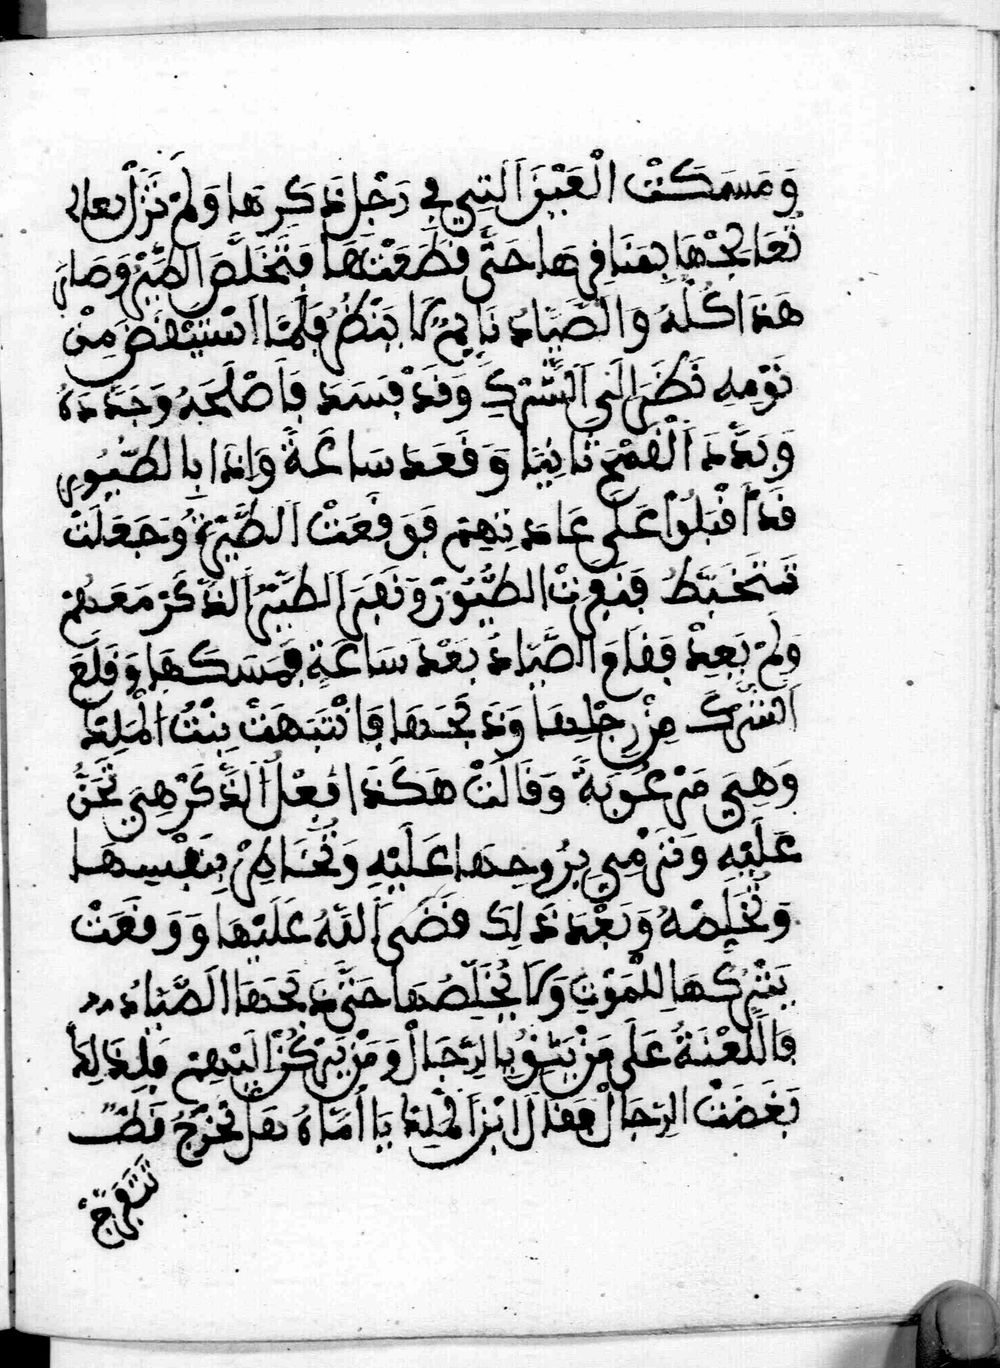 وَمَسَكَتْ الْعَيْنَ الَتِي فِي رَجْلِ ذَكَرِهَا وَلَمْ تَزَلْ
تُعَالِجْهَا بِمَنَافِرِهَا حَتَّى قَطَعَتْهَا فَتَخَلَّصَ الطَّيْرُ وَصَارَ
هَذَا كُلُّهُ وَالصَّيَّادُ نَايِمٌ لَا يَنْظُرُ فَلَمَّا اسْتَيْقَضَ مِنْ
نَوْمِهِ نَظَرَ الَى الشَّرَكِ وَقَدْ فَسَدَ فَاصْلَحَهُ وَجَدَّدَهُ
وَبَدَّدَ الْقَمْحَ ثَانِيًا وَقَعَدَ سَاعَةً وَاِذَا بِالطُّيُورِ
قَدْ اقْبَلُوا عَلَى عَادَتِهِمْ فَوَقَعَتْ الطَّيْرَةُ وَجَعَلَتْ
تَتَخَبَّطُ فَنَفِرَتْ الطُّيُورْ وَنَفَرَ الطَّيْرُ الذَّكَرْ مَعَهُمْ
وَلَمْ يَعِدْ فَقَامَ الصَّيَّادُ بَعْدَ سَاعَةٍ فَمَسَكَهَا وَقَلَعَ
الشَّرَكَ مِنْ رِجْلِهَا وَذَبَحَهَا فَانْتَبَهَتْ بِنْتُ الْمَلِكْ
وَهِيَ مَرْعُوبَةً وَقَالَتْ هَكَذَا فِعْلُ الذَّكَرْ هِيَ تَحِنُّ
عَلَيْهِ وَتَرْمِي بِرُوحِهَا عَلَيْهِ وَتُخَاطِرْ بِنَفْسِهَا
وَتُخَلِّصْهُ وَبَعْدَ ذَلِكَ قَضَى اللَّهُ عَلَيْهَا وَوَقَعَتْ
يَتْرُكْهَا لِلْمَوْتِ وَلَا يُخَلِّصُهَا حَتَّى ذَبَحَهَا الصَّيَّادُ
فَاللَّعْنَةُ عَلَى مَنْ يَثِقُ بِالرِّجَالْ وَمَنْ يَرْكُنُ الَيْهِمْ فَلِذَلِكَ
بَغَضَتْ الرِّجَالْ فَقَالَ ابْنُ الْمَلِكْ يَا اُمَّاهُ هَلْ تَخْرُجُ قَطُّ
تَتَفَرَّجُ